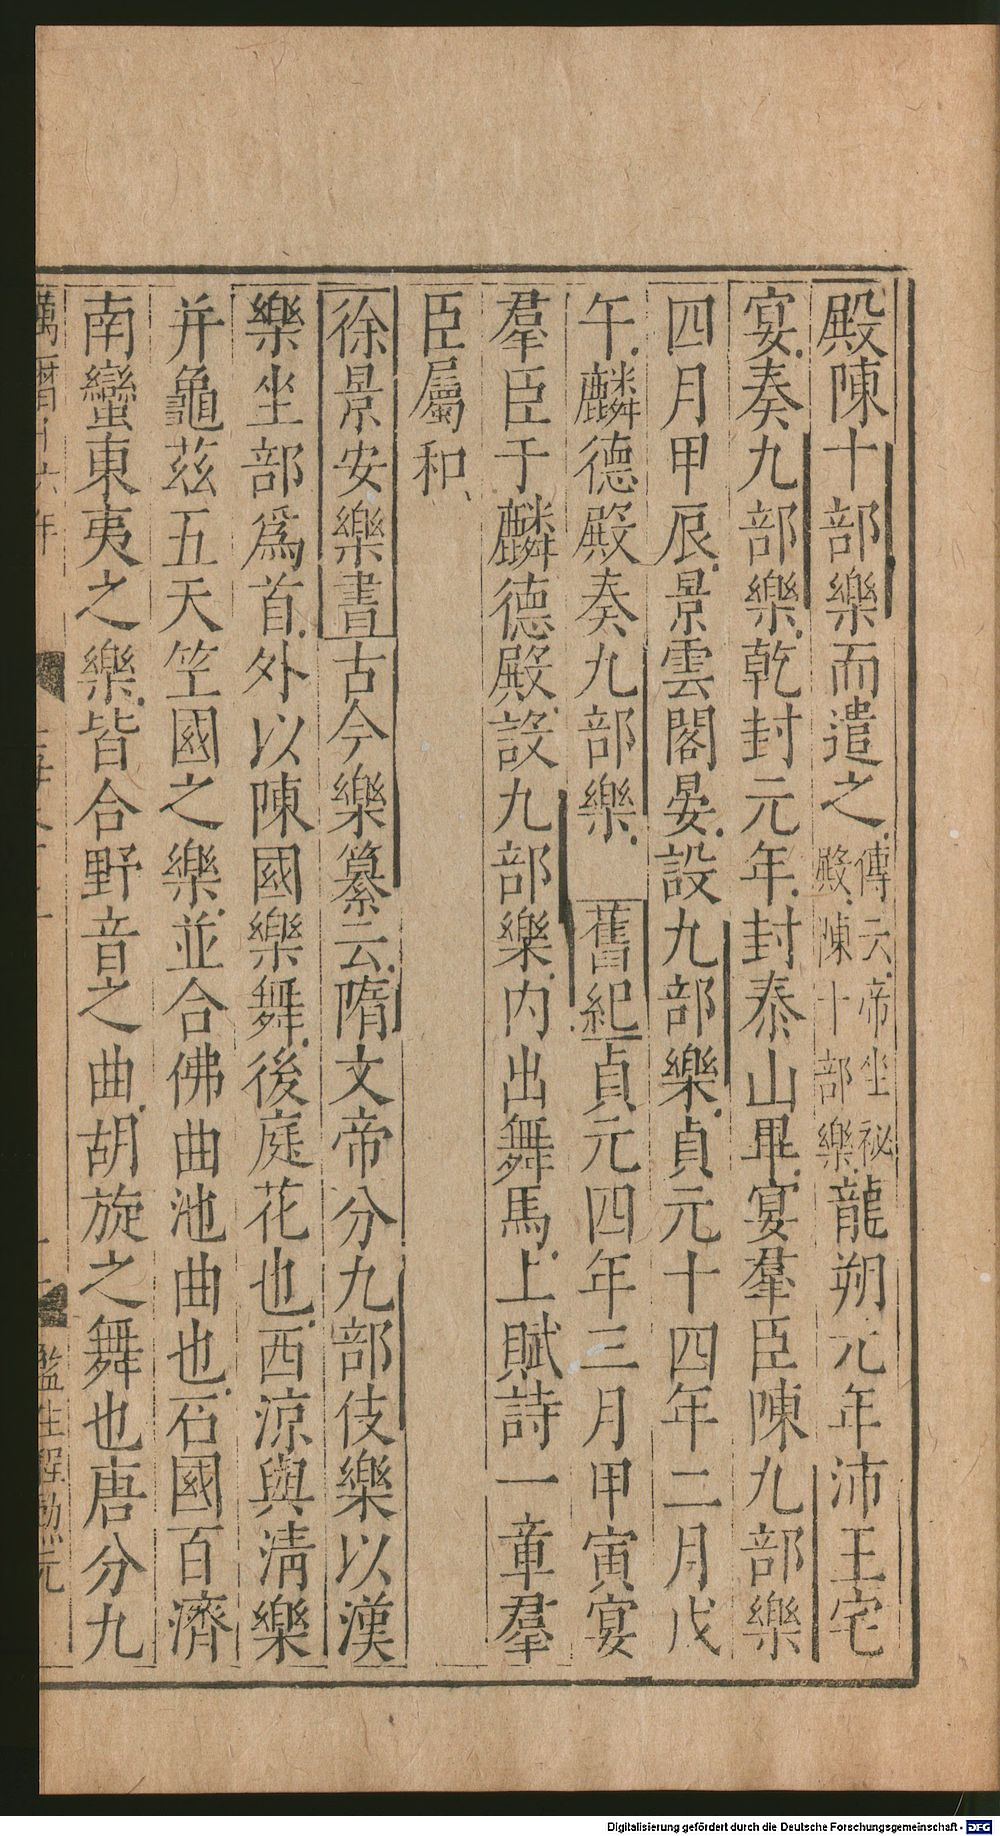 殿陳十部樂而遣之傳云帝坐祕殿陳十部樂龍朔元年沛王宅
宴奏九部樂乾封元年封泰山畢宴羣臣陳九部樂
四月甲辰景雲閣晏設九部樂貞元十四年二月戊
午麟德殿奏九部樂 舊紀貞元四年三月甲寅宴
羣臣于麟德殿設九部樂内出舞馬上賦詩一章羣
臣屬和
徐景安樂書古今樂纂云隋文帝分九部伎樂以漢
樂坐部爲首外以陳國樂舞後庭花也西涼與清樂
并龜茲五天竺國之樂並合佛曲池曲也石國百濟
南蠻東夷之樂皆合野音之曲胡旋之舞也唐分九
監生程勲元
Digitalisierung gefördert durch die Deutsche Forschungsgemeinschaft - DFG